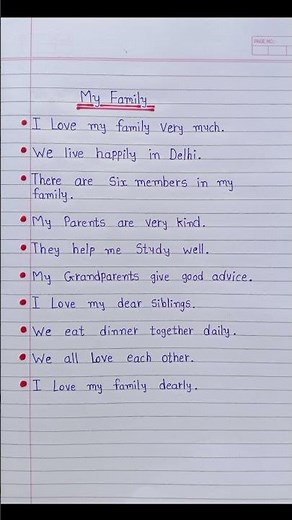 PAGE NO.:
My Family
• I Love my family Very much.
• We live happily in Delhi.
• There are Six members in my
family.
• My Parents are very kind.
• They help me Study well.
• My Grandparents give good advice.
• I Love my dear Siblings.
• We eat dinner together daily.
• We all Love each other.
• I Love my family dearly.